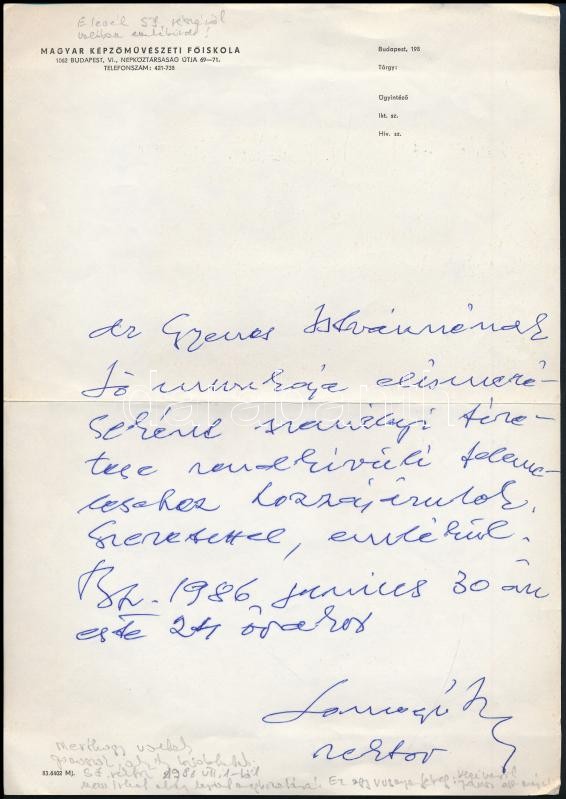 E levél SZ.
MAGYAR KÉPZŐMŰVÉSZETI FŐISKOLA
1062 BUDAPEST, VI., NÉPKÖZTÁRSASÁG ÚTJA 69—71.
TELEFONSZÁM: 421-738
Budapest, 198
Tárgy:
Ügyintéző
Ikt. sz.
Hiv. sz.
dr Gyenes Istvánnénak
jó munkája elismeré-
seként személyi fize-
tése rendkívüli feleme-
léséhez hozzájárulok.
Szeretettel, emlékül.
Bp. 1986 junius 30 án
este 24 órakor
Somogyi
rektor
darabanth
83.6402 MJ.
SZ. rektor 1986 VII. 1-től
Ez egy